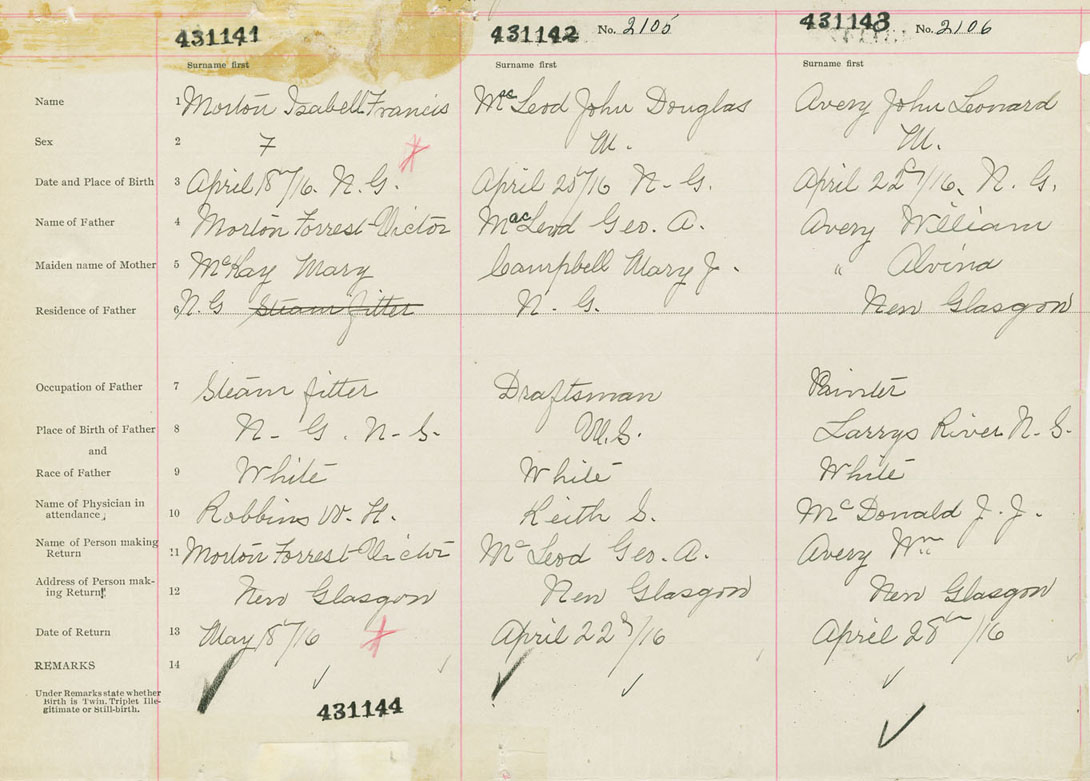 431141 431142 No. 2105 431143 No. 2106
Surname first Surname first Surname first
Name 1 Morton Isabell Francis MacLeod John Douglas Avery John Leonard
Sex 2 F M. M.
Date and Place of Birth 3 April 18th/16. N.G. April 20th/16 N-G. April 22nd/16. N.G.
Name of Father 4 Morton Forrest Victor MacLeod Geo. A. Avery William
Maiden name of Mother 5 McKay Mary Campbell Mary J. " Alvina
Residence of Father 6 N.G Steam fitter N. G. New Glasgow
Occupation of Father 7 Steam fitter Draftsman Painter
Place of Birth of Father 8 N-G. N-S. Larrys River N.S.
and
Race of Father 9 White White White
Name of Physician in
attendance, 10 Robbins W. H. Keith S. McDonald J. J.
Name of Person making
Return 11 Morton Forrest Victor McLeod Geo. A. Avery Wm
Address of Person mak-
ing Return 12 New Glasgow New Glasgow New Glasgow
Date of Return 13 May 18th/16 April 22nd/16 April 28th/16
REMARKS 14
Under Remarks state whether
Birth is Twin. Triplet Ille-
gitimate or Still-birth.
431144